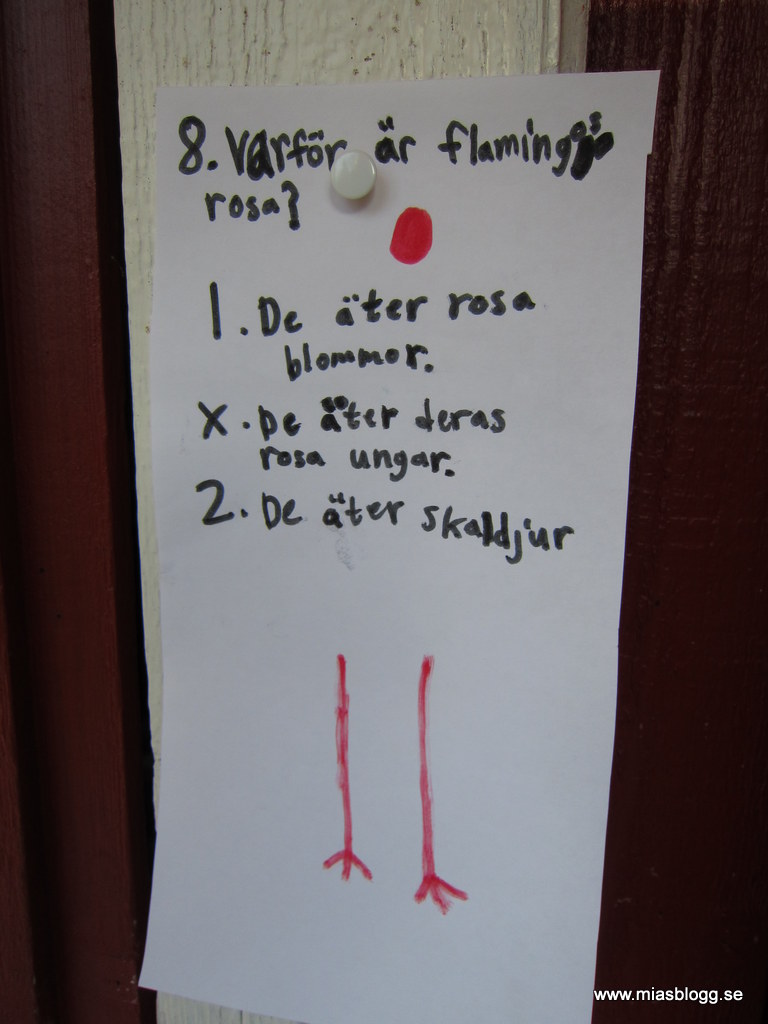 8. Varför är flamingos
rosa?
1. De äter rosa
blommor.
X. De äter deras
rosa ungar.
2. De äter skaldjur
www.miasblogg.se